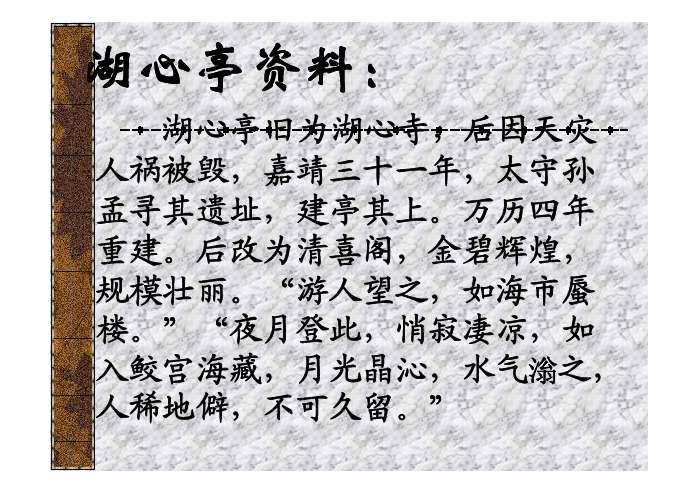 湖心亭资料：
湖心亭旧为湖心寺，后因天灾
人祸被毁，嘉靖三十一年，太守孙
孟寻其遗址，建亭其上。万历四年
重建。后改为清喜阁，金碧辉煌，
规模壮丽。“游人望之，如海市蜃
楼。”“夜月登此，悄寂凄凉，如
入鲛宫海藏，月光晶沁，水气滃之，
人稀地僻，不可久留。”